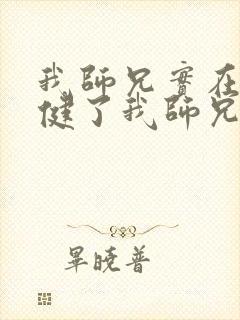 我師兄實在
健了我師兄
畢曉普